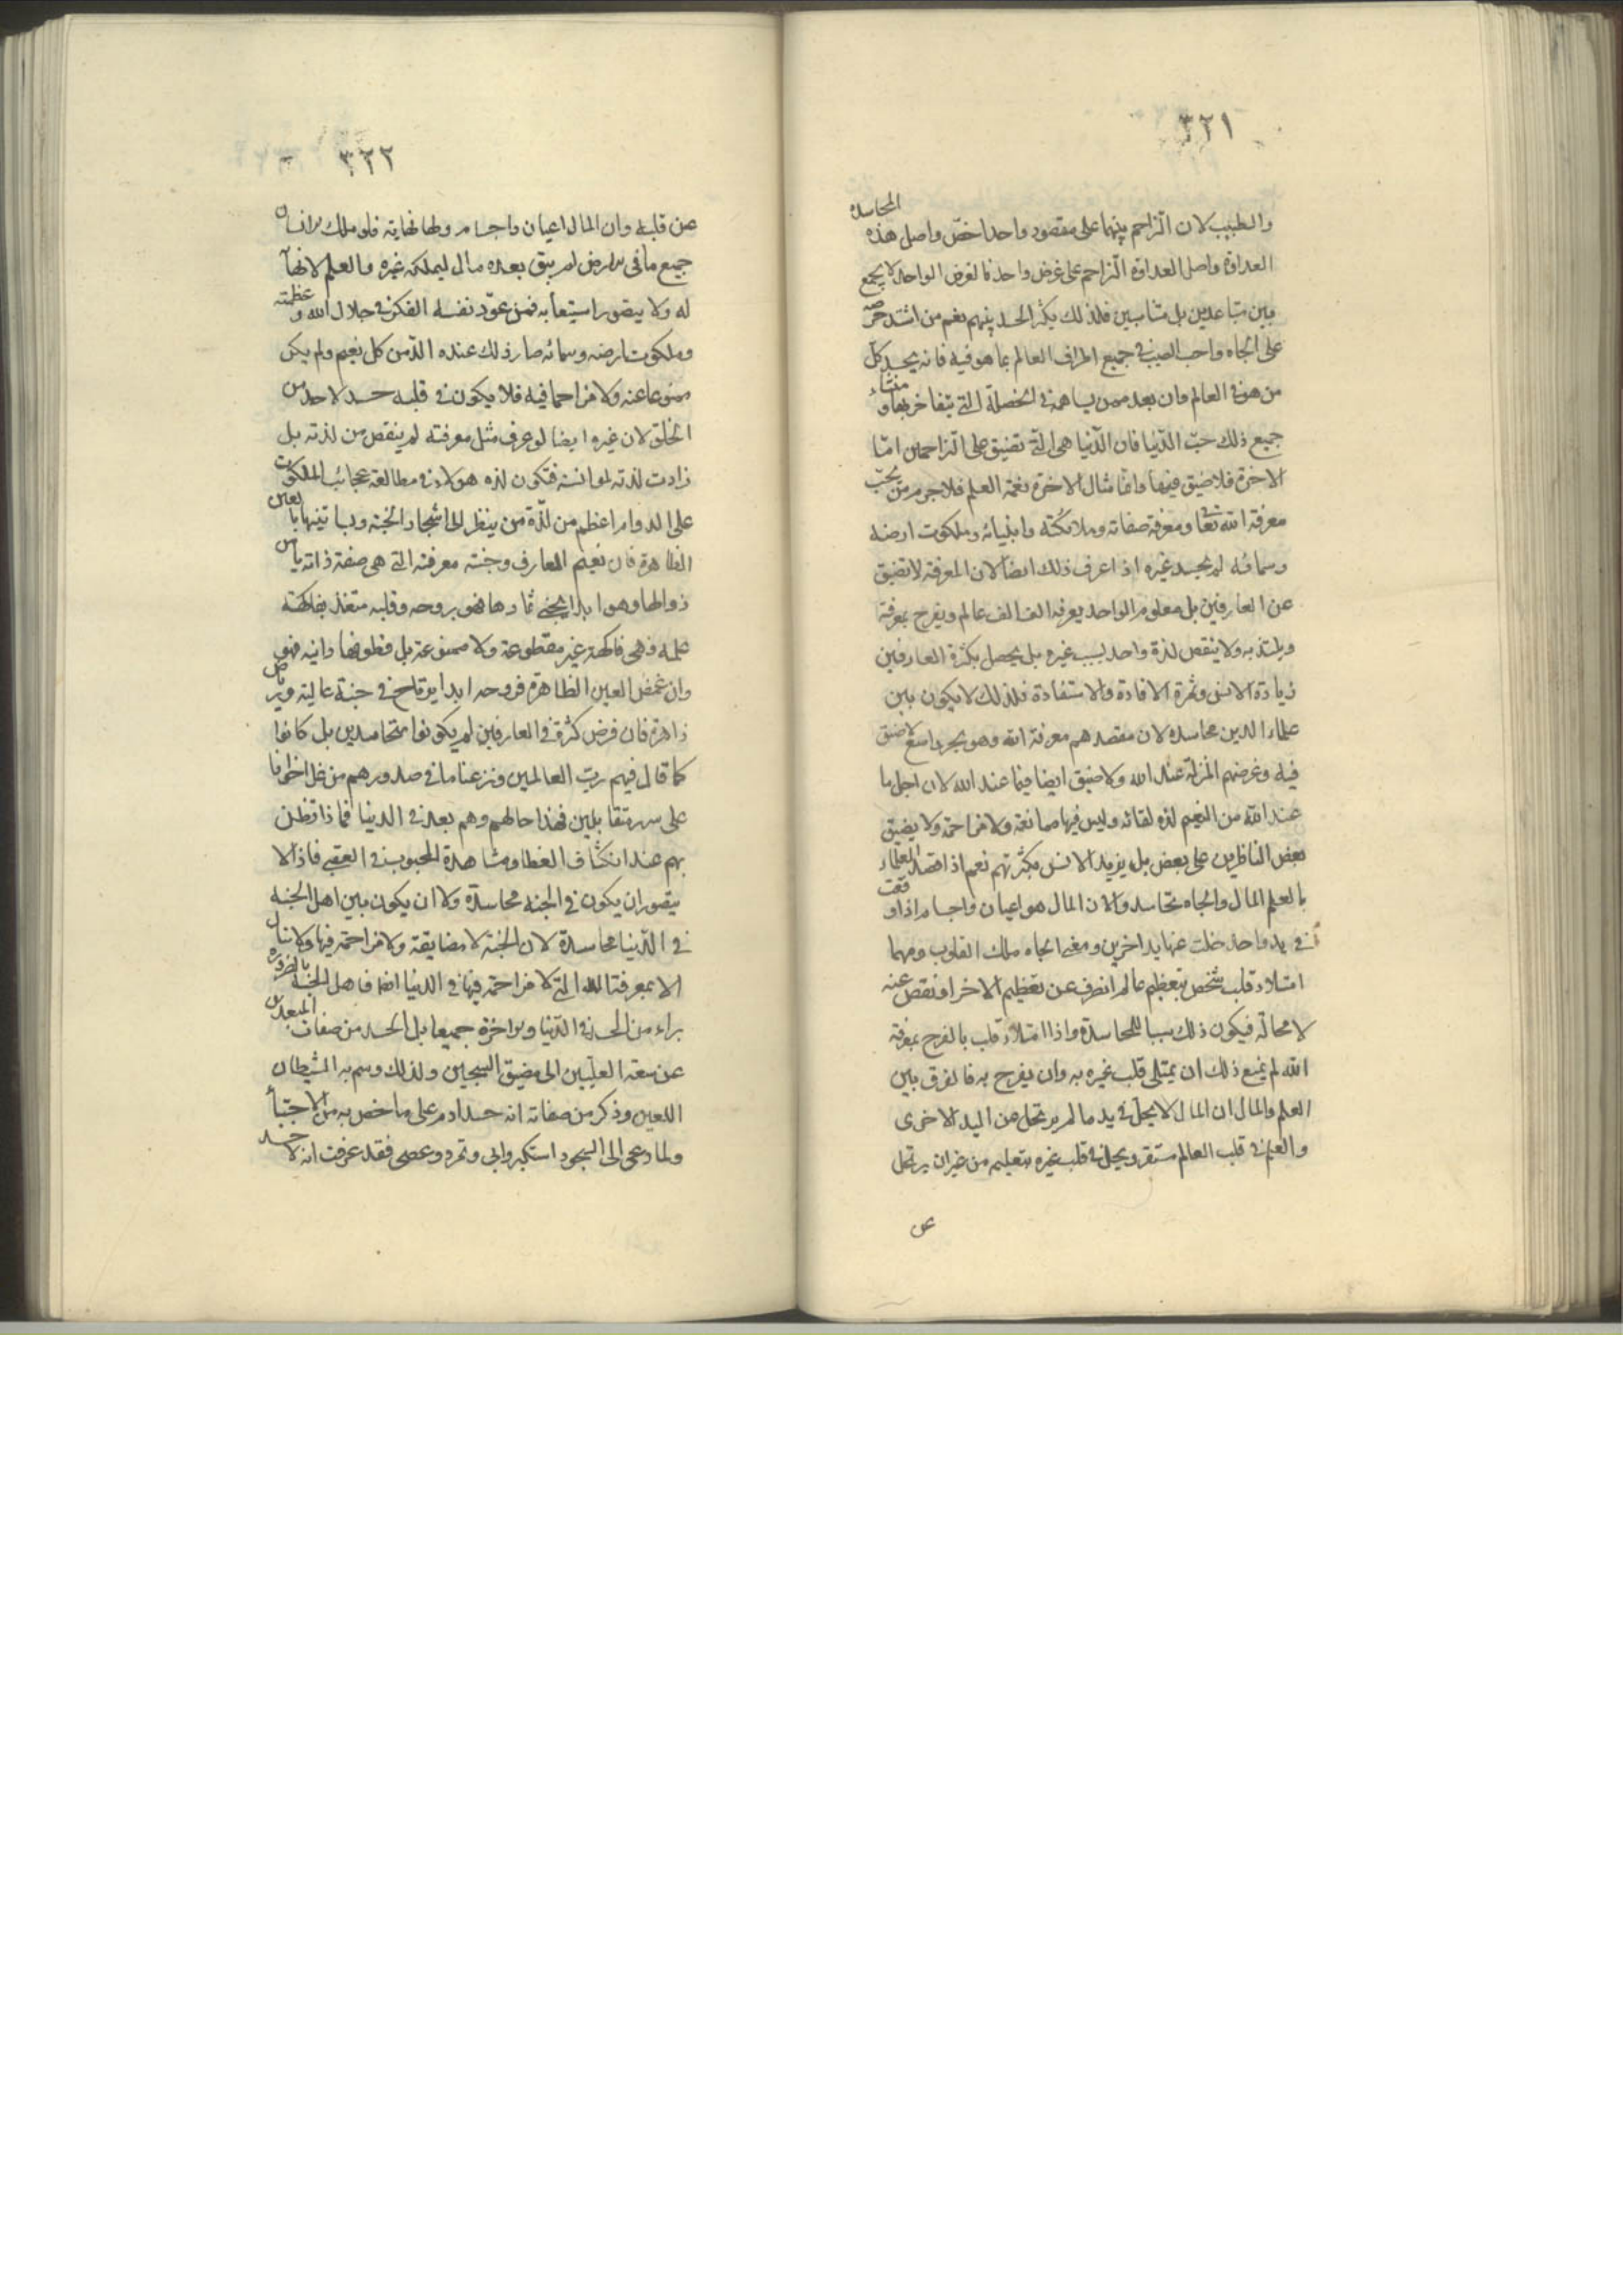 ٣٢١
والطبيب لان التزاحم بينهما على مقصود واحد اخصّ واصل هذه المحاسدة
العداوة واصل العداوة التزاحم على غرض واحد فالغرض الواحد لا يجمع
بين متباعدين بل متناسبين فلذلك يكثر الحسد بينهم نعم من اشتد حرصه
على الجاه واحب الصيت في جميع اطراف العالم بما هو فيه فانه يحسد كل
من هو في العالم وان بعد ممن يساهمه في الخصلة التي يتفاخر بها ومنشاء
جميع ذلك حبّ الدّنيا فان الدّنيا هي التي تضيق على المتزاحمين امّا
الاخرة فلا ضيق فيها وانما مثال الاخرة نعمة العلم فلا جرم من يحبّ
معرفة الله تعا ومعرفة صفاته وملائكته وانبيائه وملكوت ارضه
وسمائه لم يحسد غيره اذا عرف ذلك ايضا لان المعرفة لا تضيق
عن العارفين بل معلوم الواحد يعرفه الف الف عالم ويفرح بمعرفته
ويلتذ به ولا ينقص لذة واحد بسبب غيره بل يحصل بكثرة العارفين
زيادة الانس وثمرة الافادة والاستفادة فلذلك لا يكون بين
علماء الدين محاسدة لان مقصدهم معرفة الله وهو بحر واسع لا ضيق
فيه وغرضهم المنزلة عند الله ولا ضيق ايضا فيما عند الله لان اجل ما
عند الله من النعيم لذة لقائه وليس فيها ممانعة ولا مزاحمة ولا يضيق
بعض الناظرين على بعض بل يزيد الانس بكثرتهم نعم اذا قصد العلماء
بالعلم المال والجاه تحاسدوا لان المال هو اعيان واجسام اذا وقعت
في يد واحد خلت عنها يد اخرين ومعنى الجاه ملك القلوب ومهما
امتلاء قلب شخص بتعظيم عالم انصرف عن تعظيم الاخر او نقص عنه
لا محالة فيكون ذلك سببا للمحاسدة واذا امتلاء قلب بالفرح بمعرفة
الله لم يمنع ذلك ان يمتلى قلب غيره به وان يفرح به فالفرق بين
العلم والمال ان المال لا يحل في يد ما لم يرتحل عن اليد الاخرى
والعلم في قلب العالم مستقر ويحل في قلب غيره بتعليم من غير ان يرتحل
عن
٣٢٢
عن قلبه وان المال اعيان واجسام ولها نهاية فلو ملك الانسان
جميع ما في الارض لم يبق بعده مال ليملكه غيره والعلم لا نهاية
له ولا يتصور استيعابه فمن عوّد نفسه الفكر في جلال الله وعظمته
وملكوت ارضه وسمائه صار ذلك عنده الذّ من كل نعيم ولم يكن
ممنوعا عنه ولا مزاحما فيه فلا يكون في قلبه حسد لاحد من
الخلق لان غيره ايضا لو عرف مثل معرفته لم ينقص من لذته بل
زادت لذته لموانسته فتكون لذة هولاء في مطالعة عجائب الملكوت
على الدوام اعظم من لذّة من ينظر الى اشجار الجنة وبساتينها بالعين
الظاهرة فان نعيم العارف وجنته معرفته التي هي صفة ذاته يأمن
زوالها وهو ابدا يجني ثمارها فهو بروحه وقلبه متغذ بفاكهة
علمه وهي فاكهة غير مقطوعة ولا ممنوعة بل قطوفها دانية فهو
وان غمض العين الظاهرة فروحه ابدا يرتاح في جنة عالية ورياض
زاهرة فان فرض كثرة في العارفين لم يكونوا متحاسدين بل كانوا
كما قال فيهم ربّ العالمين ونزعنا ما في صدورهم من غل اخوانا
على سرر متقابلين فهذا حالهم وهم بعد في الدنيا فما ذا تظن
بهم عند انكشاف الغطا ومشاهدة المحبوب في العقبى فاذا لا
يتصور ان يكون في الجنة محاسدة ولا ان يكون بين اهل الجنة
في الدّنيا محاسدة لان الجنة لا مضايقة ولا مزاحمة فيها ولا تنال
الا بمعرفة الله التي لا مزاحمة فيها في الدنيا ايضا فاهل الجنة بالضرورة
براء من الحسد في الدّنيا والاخرة جميعا بل الحسد من صفات المبعدين
عن سعة العليّين الى مضيق السجين ولذلك وسم به الشيطان
اللعين وذكر من صفاته انه حسد ادم على ما خص به من الاجتباء
ولما دعي الى السجود استكبر وابى وتمرد وعصى فقد عرفت انه لا حسد